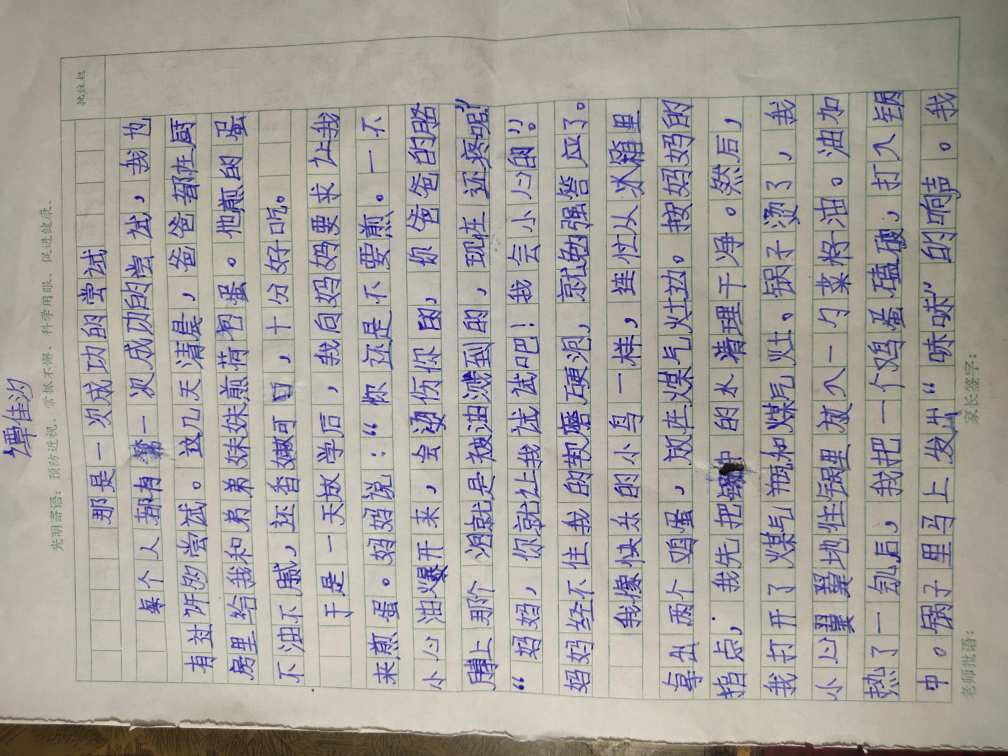 谭佳汐
光明寄语：预防近视，常抓不懈，科学用眼，促进健康。
那是一次成功的尝试
每个人都有第一次成功的尝试，我也
有过许多尝试。这几天清晨，爸爸都在厨
房里给我和弟弟妹妹煎荷包蛋。他煎的蛋
不油不腻，还香嫩可口，十分好吃。
于是一天放学后，我向妈妈要求让我
来煎蛋。妈妈说：“你还是不要煎。一不
小心油爆开来，会烫伤你的，你爸爸的胳
膊上那个泡就是被油溅到的，现在还疼呢！”
“妈妈，你就让我试试吧！我会小心的”。
妈妈经不住我的软磨硬泡，就勉强答应了。
我像快乐的小鸟一样，连忙从冰箱里
拿出两个鸡蛋，放在煤气灶边。按妈妈的
指点，我先把锅中的水清理干净。然后，
我打开了煤气瓶和煤气灶。锅子烫了，我
小心翼翼地往锅里放入一勺菜籽油。油加
热了一会后，我把一个鸡蛋磕破，打入锅
中。锅子里马上发出“哧哧”的响声。我
老师批语：
家长签字：